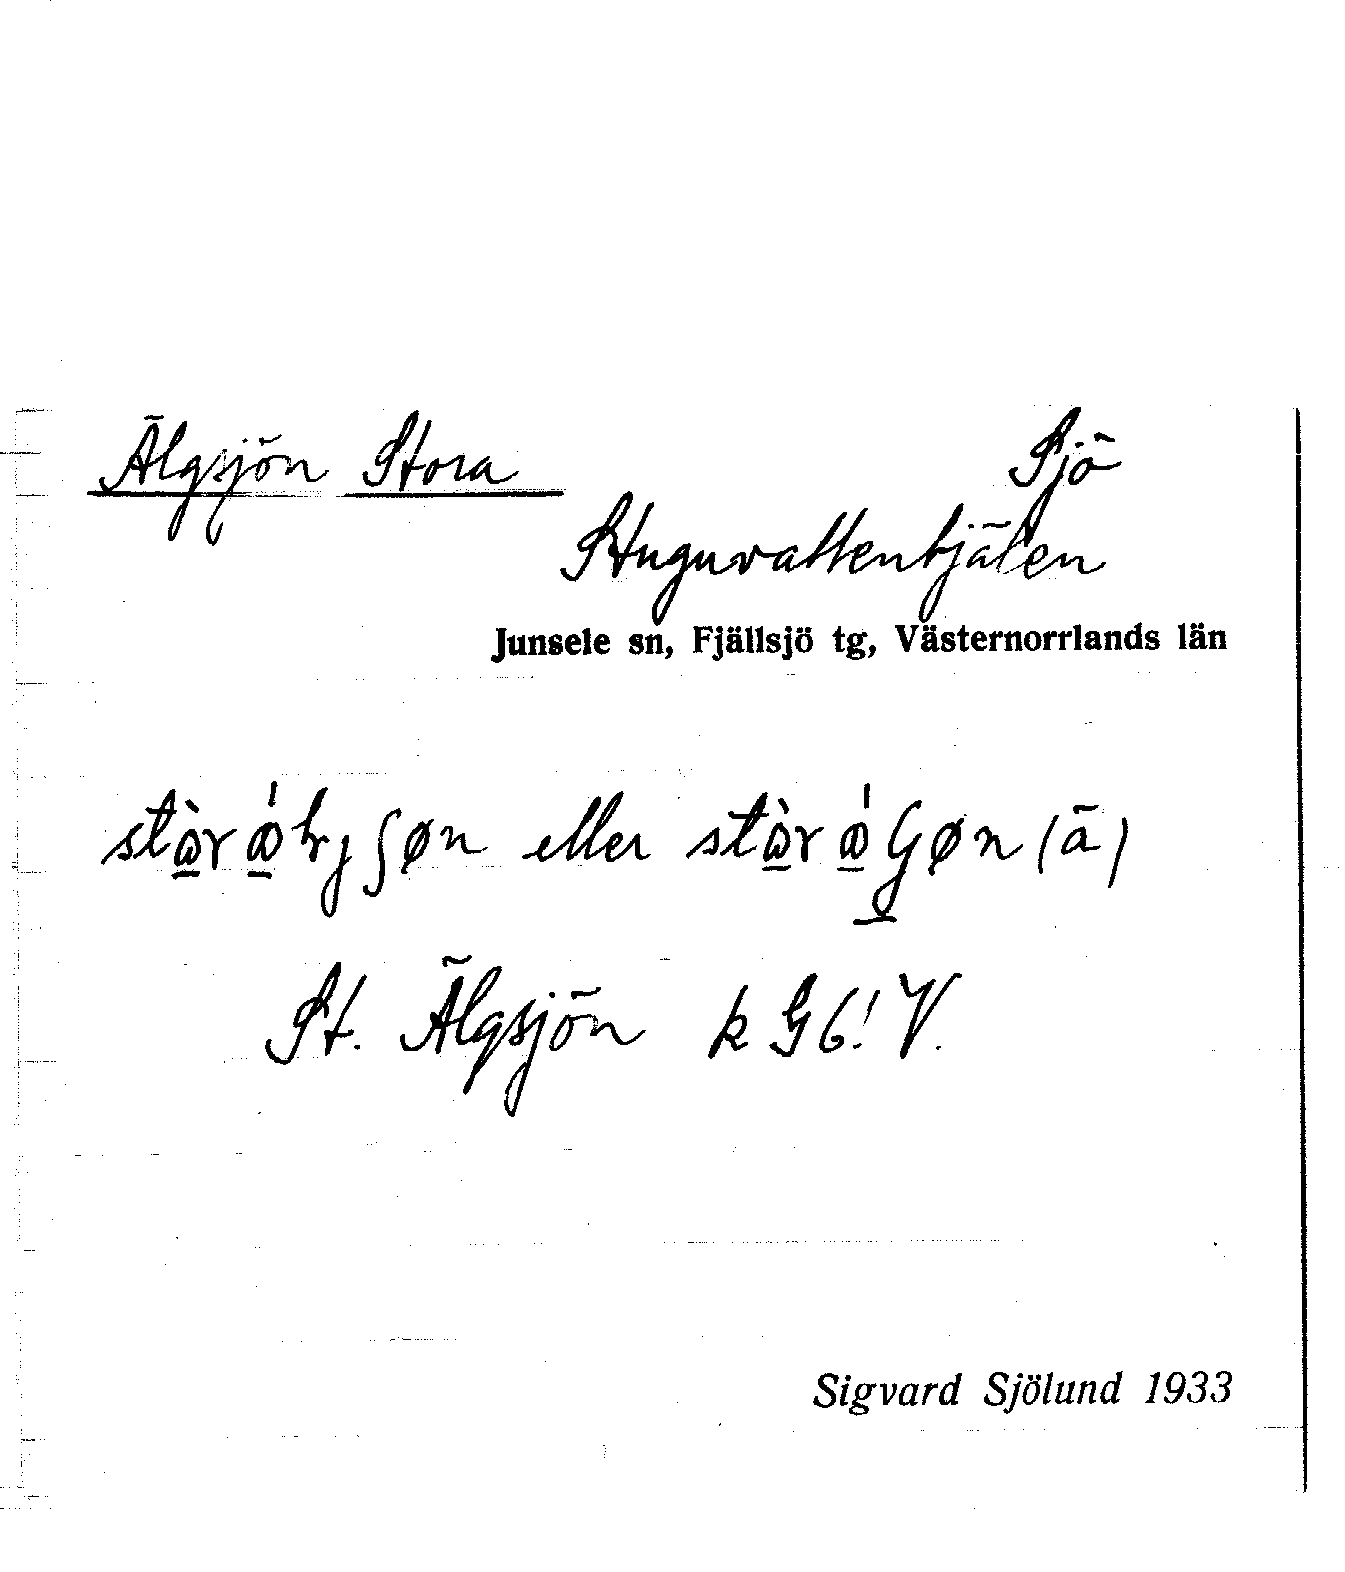 Älgsjön Stora Sjö
Stuguvattentjälen
Junsele sn, Fjällsjö tg, Västernorrlands län
eller (ä)
St. Älgsjön k G6! V.
Sigvard Sjölund 1933